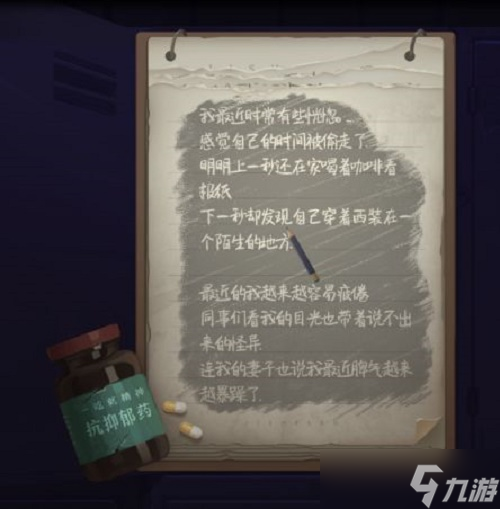 我最近时常有些恍惚…
感觉自己的时间被偷走了
明明上一秒还在家喝着咖啡看
报纸
下一秒却发现自己穿着西装在一
个陌生的地方
最近的我越来越容易疲倦
同事们看我的目光也带着说不出
来的怪异
连我的妻子也说我最近脾气越来
越暴躁了
抗抑郁药
九游